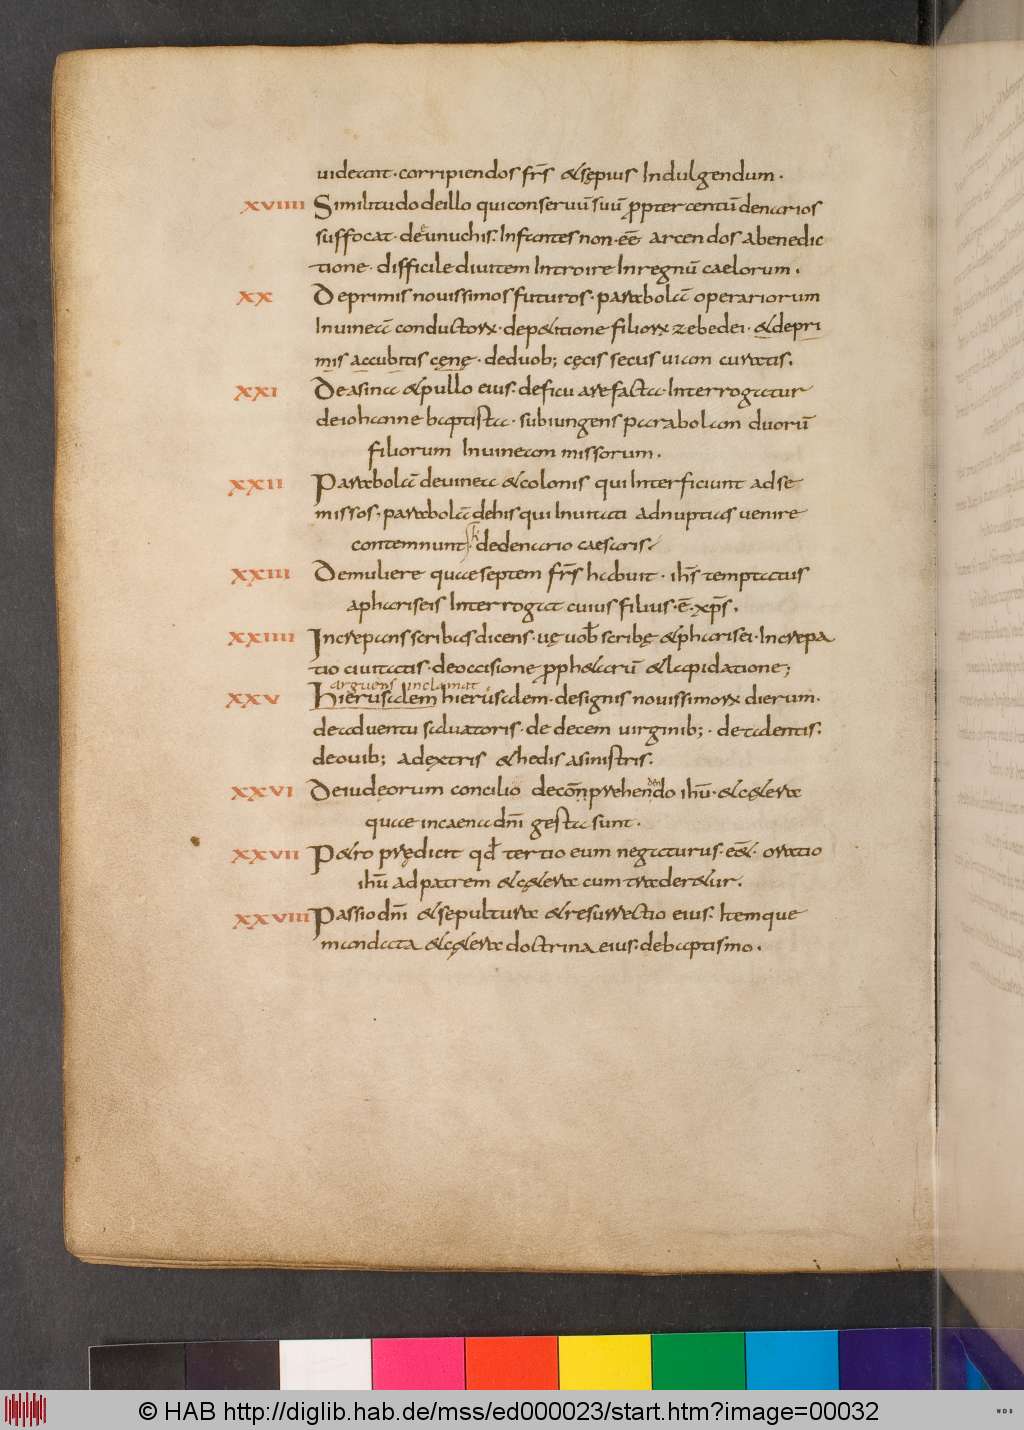 uideant · corripiendos fr̄s & sępius Indulgendum ·
XVIIII Similitudo de illo qui conseruū suū ꝓpter centū denarios
suffocat · de eunuchis · Infantes non · eē arcendos abenedic
tione · difficile diuitem Introire In regnū caelorum ·
XX De primis nouissimos futuros · parabolā operariorum
In uineā conductoꝝ · de petitione filioꝝ zebedei · & de pri
mis accubitis cęnę · de duob; cęcis secus uiam curatis ·
XXI De asina & pullo eius · de ficu arefacta · Interrogatur
de iohanne baptista · subiungens parabolam duorū
filiorum In uineam missorum ·
XXII Parabolā de uinea & colonis qui Interficiunt ad se
missos · parabolā de his qui Inuitati ad nuptias uenire
contemnunt · de denario caesaris ·
XXIII De muliere quae septem fr̄s habuit · ih̄s temptatus
a phariseis Interrogat cuius filius · ē · xp̄s ·
XXIIII Increpans scribas dicens · uę uob̄ scribę & pharisei · Increpa
tio ciuitatis · de occisione ꝓph&arū & lapidatione;
arguens inclamat
XXV Hierusalem hierusalem · de signis nouissimoꝝ dierum ·
de aduentu saluatoris · de decem uirginib; · de talentis ·
de ouib; a dextris & hedis a sinistris ·
XXVI De iudeorum concilio de con̄prehendendo ihū · & c&era
quae in caena dn̄i gesta sunt ·
XXVII P&ro prędicit qđ tertio eum negaturus · eēt · oratio
ihū ad patrem & c&era cum trader&ur ·
XXVIII Passio dn̄i & sepultura & resurrectio eius · Itemque
mandata & c&era doctrina eius · de baptismo ·
© HAB http://diglib.hab.de/mss/ed000023/start.htm?image=00032